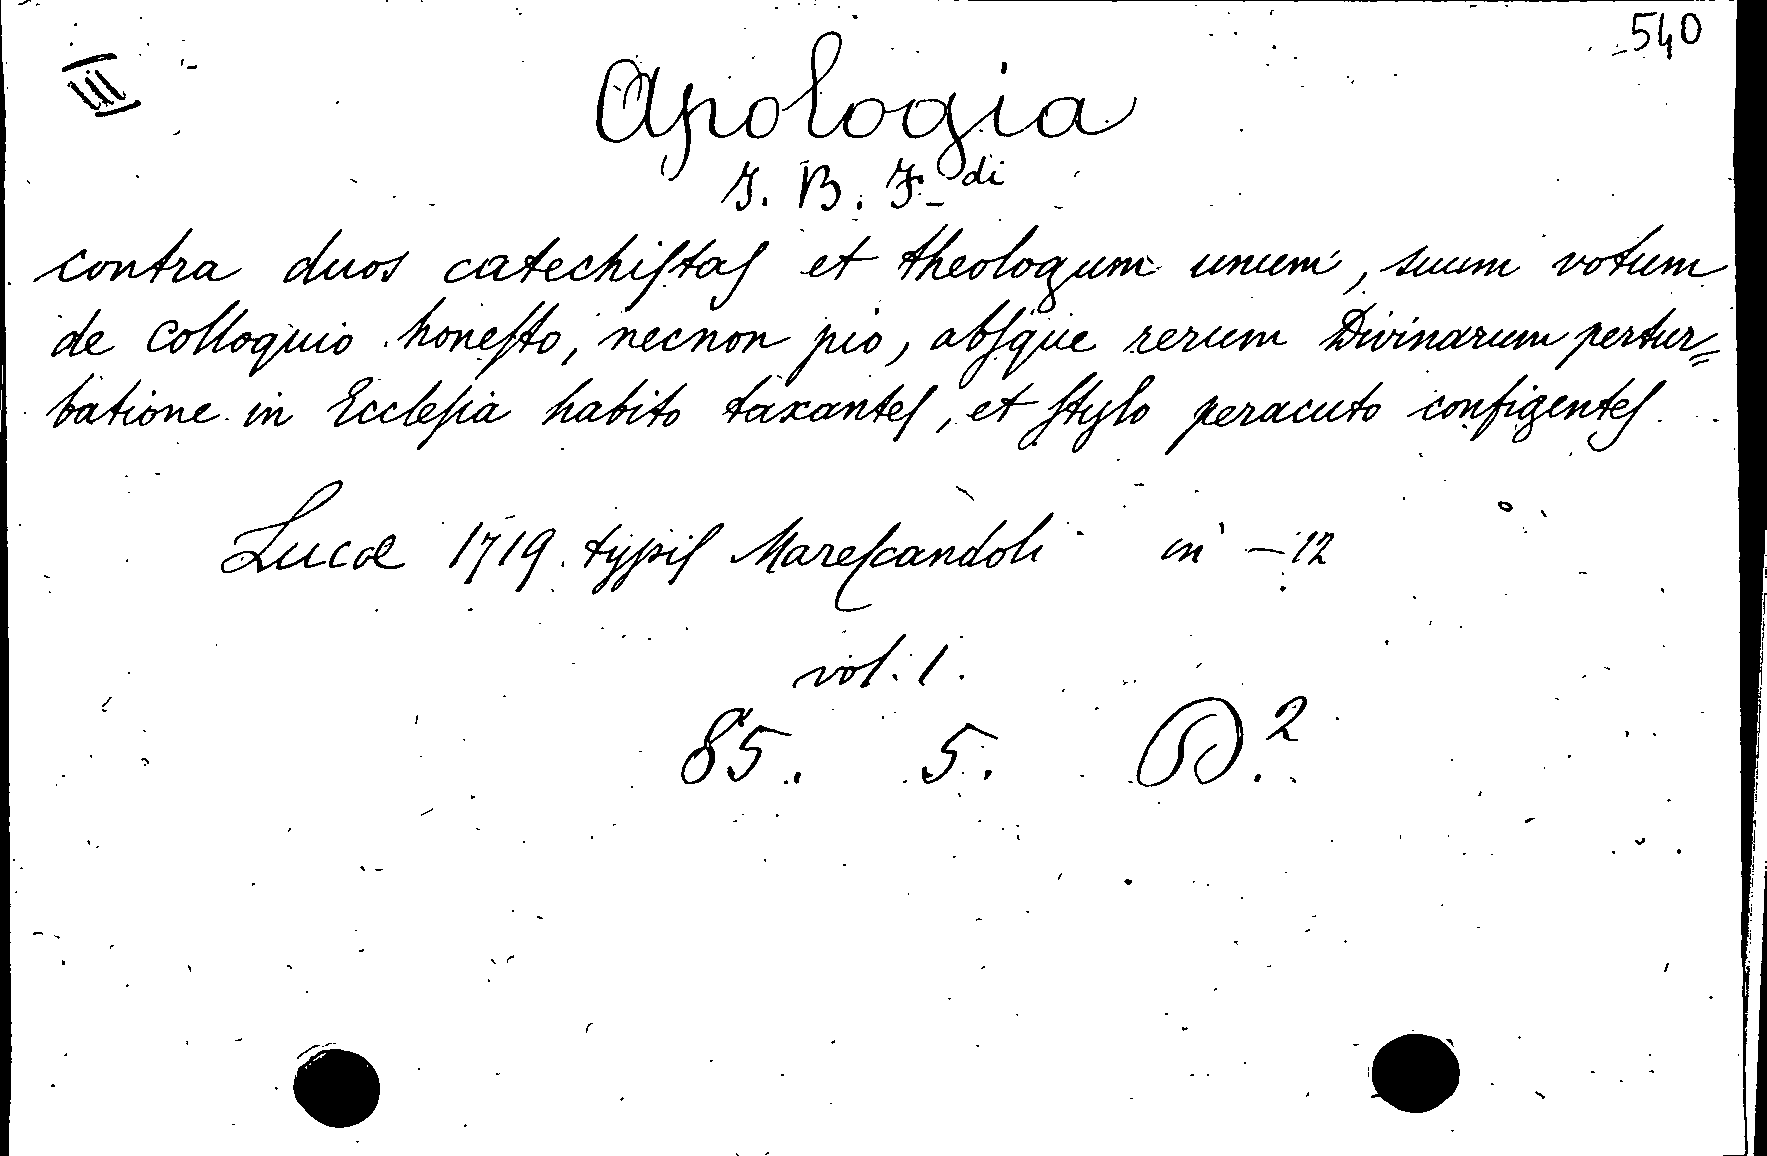 540
III
Apologia
J. B. F.di
contra duos catechiſtaſ et theologum unum, suum votum
de colloquio honeſto, necnon pio, abſque rerum Divinarum pertur=
batione in Eccleſia habito taxanteſ, et ſtylo peracuto configenteſ
Lucæ 1719. typiſ Mareſcandoli in -12
vol. 1.
85. 5. D.2